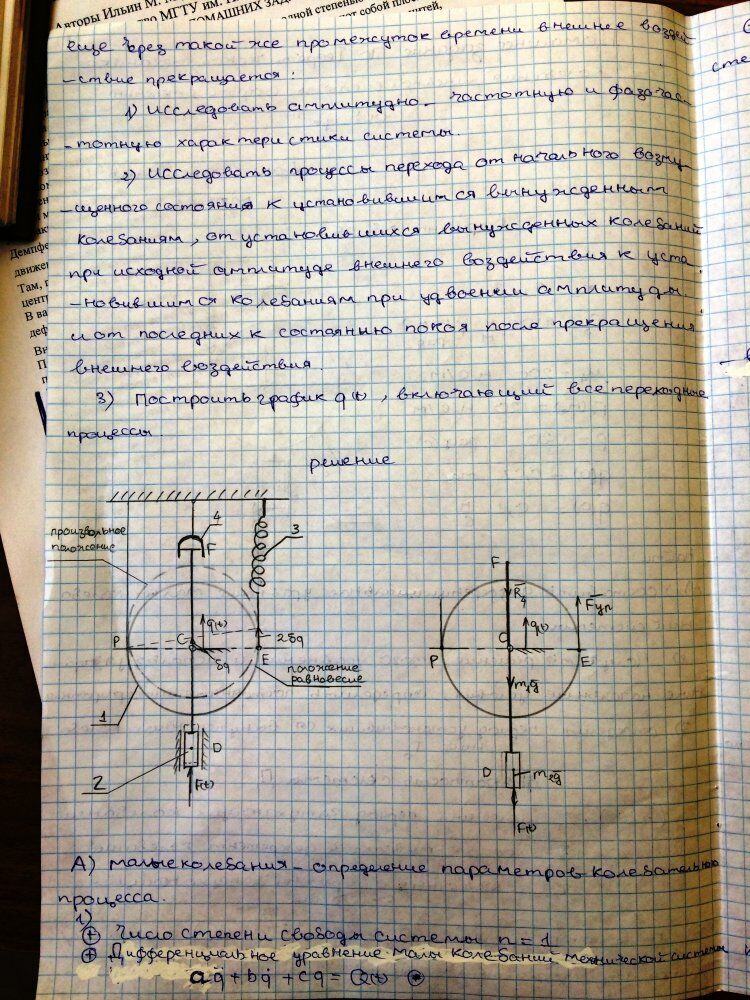 Авторы Ильин М.
МГТУ им.
ДОМАШНИХ
одной степенью
собой
еще через такой же промежуток времени внешнее воздей
-ствие прекращается:
1) исследовать амплитудно- частотную и фазочас-
-тотную характеристики системы.
2) исследовать процессы перехода от начального возму-
-щенного состояния к установившимся вынужденным
колебаниям, от установившихся вынужденных колебаний
при исходной амплитуде внешнего воздействия к уста
-новившимся колебаниям при удвоении амплитуды.
и от последних к состоянью покоя после прекращения
внешнего воздействия.
3) Построить график q(t), включающий все переходные
процессы.
решение
произвольное
положение
4
F
3
P
C
q(t)
δq
2δq
E
положение
равновесие
1
2
D
F(t)
F
R4
Fупр
q(t)
P
C
E
m1g
D
m2g
F(t)
А) малые колебания - определение параметров колебательного
процесса.
1)
⊕ Число степени свободы системы n = 1
⊕ Дифференциальное уравнение малы колебаний механической системы
aq̈ + bq̇ + cq = Q(t)
Демпфе
движен
Там,
центр
В ва
деф
Вн
П
сте